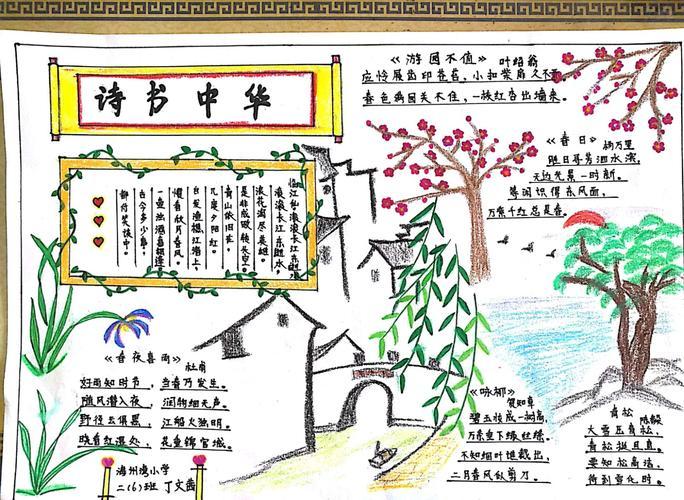 诗书中华
《游园不值》 叶绍翁
应怜屐齿印苍苔，小扣柴扉久不
春色满园关不住，一枝红杏出墙来。
《春日》 杨万里
胜日寻芳泗水滨，
无边光景一时新。
等闲识得东风面，
万紫千红总是春。
临江仙·滚滚长江东逝水
滚滚长江东逝水，
浪花淘尽英雄。
是非成败转头空。
青山依旧在，
几度夕阳红。
白发渔樵江渚上，
惯看秋月春风。
一壶浊酒喜相逢。
古今多少事，
都付笑谈中。
《春夜喜雨》 杜甫
好雨知时节，当春乃发生。
随风潜入夜，润物细无声。
野径云俱黑，江船火独明。
晓看红湿处，花重锦官城。
《咏柳》
贺知章
碧玉妆成一树高，
万条垂下绿丝绦。
不知细叶谁裁出，
二月春风似剪刀。
青松 陈毅
大雪压青松，
青松挺且直。
要知松高洁，
待到雪化时。
海州湾小学
二（6）班 丁文